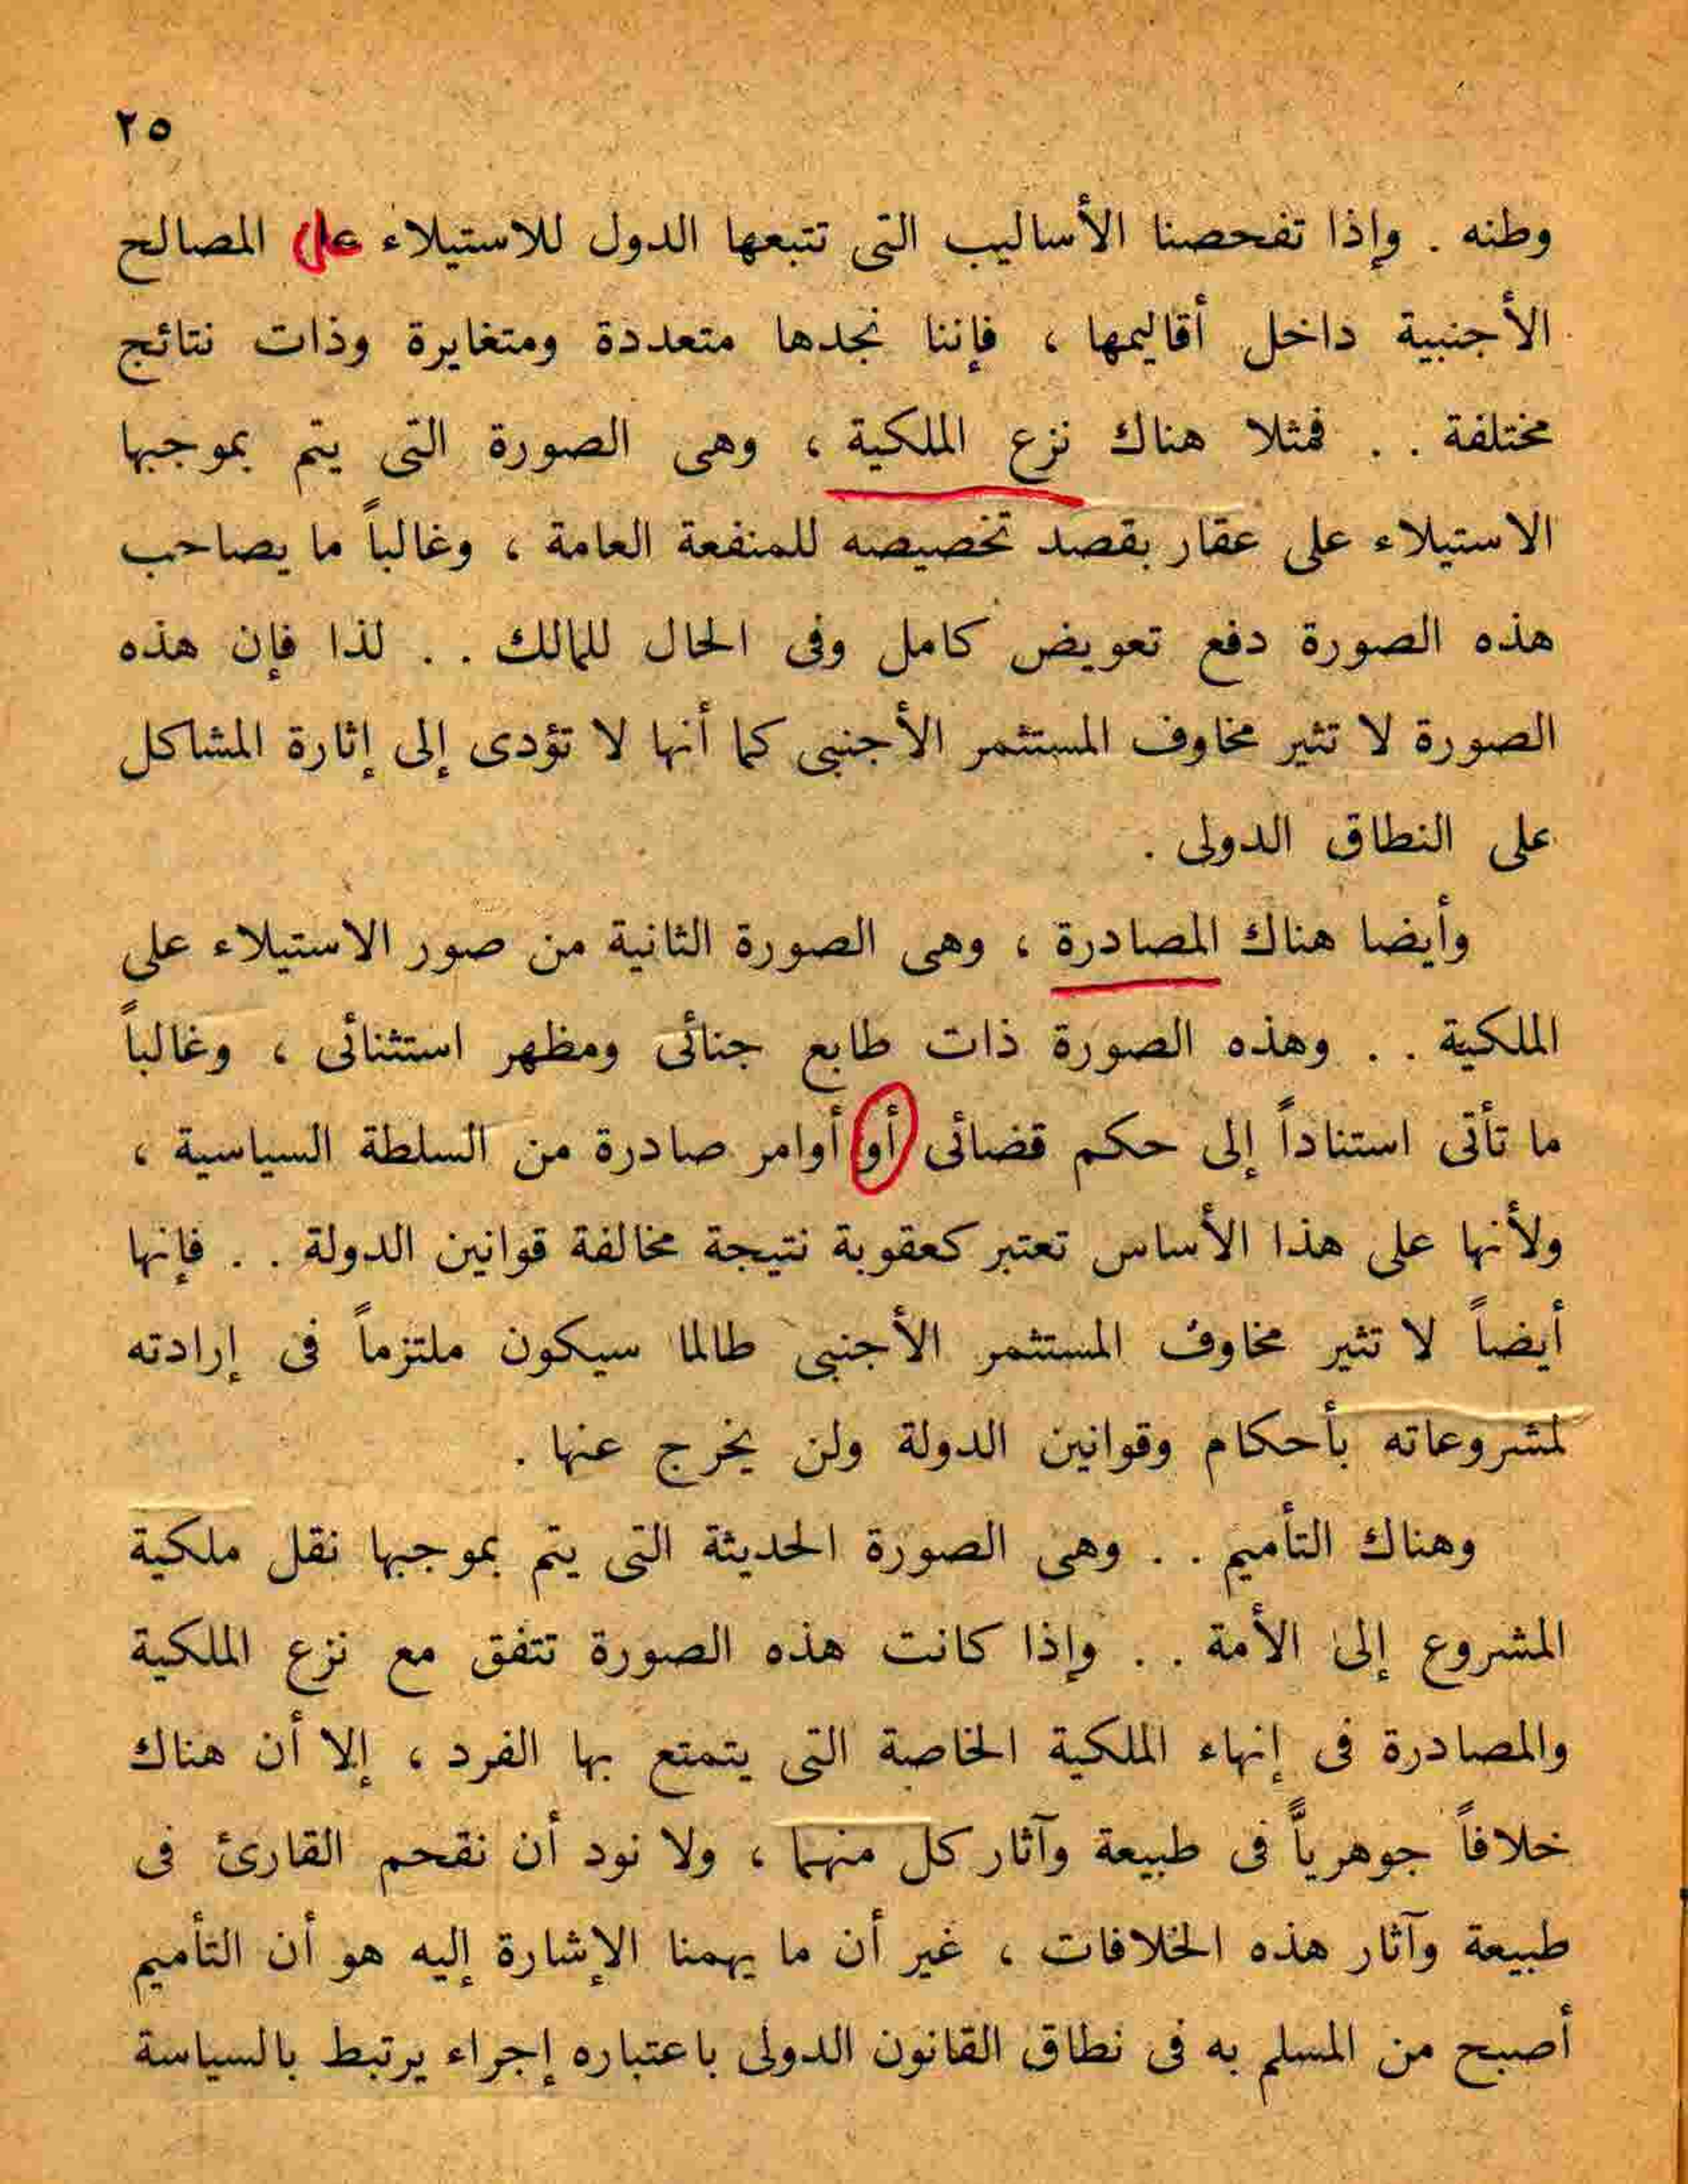 ٢٥
وطنه . وإذا تفحصنا الأساليب التى تتبعها الدول للاستيلاء على المصالح
الأجنبية داخل أقاليمها ، فإننا نجدها متعددة ومتغايرة وذات نتائج
مختلفة . . فمثلا هناك نزع الملكية ، وهى الصورة التى يتم بموجبها
الاستيلاء على عقار بقصد تخصيصه للمنفعة العامة ، وغالباً ما يصاحب
هذه الصورة دفع تعويض كامل وفى الحال للمالك . . لذا فإن هذه
الصورة لا تثير مخاوف المستثمر الأجنبى كما أنها لا تؤدى إلى إثارة المشاكل
على النطاق الدولى .
وأيضا هناك المصادرة ، وهى الصورة الثانية من صور الاستيلاء على
الملكية . . وهذه الصورة ذات طابع جنائى ومظهر استثنائى ، وغالباً
ما تأتى استناداً إلى حكم قضائى أو أوامر صادرة من السلطة السياسية ،
ولأنها على هذا الأساس تعتبر كعقوبة نتيجة مخالفة قوانين الدولة . . فإنها
أيضاً لا تثير مخاوف المستثمر الأجنبى طالما سيكون ملتزماً فى إرادته
لمشروعاته بأحكام وقوانين الدولة ولن يخرج عنها .
وهناك التأميم . . وهى الصورة الحديثة التى يتم بموجبها نقل ملكية
المشروع إلى الأمة . . وإذا كانت هذه الصورة تتفق مع نزع الملكية
والمصادرة فى إنهاء الملكية الخاصة التى يتمتع بها الفرد ، إلا أن هناك
خلافاً جوهرياً فى طبيعة وآثار كل منهما ، ولا نود أن نقحم القارئ فى
طبيعة وآثار هذه الخلافات ، غير أن ما يهمنا الإشارة إليه هو أن التأميم
أصبح من المسلم به فى نطاق القانون الدولى باعتباره إجراء يرتبط بالسياسة